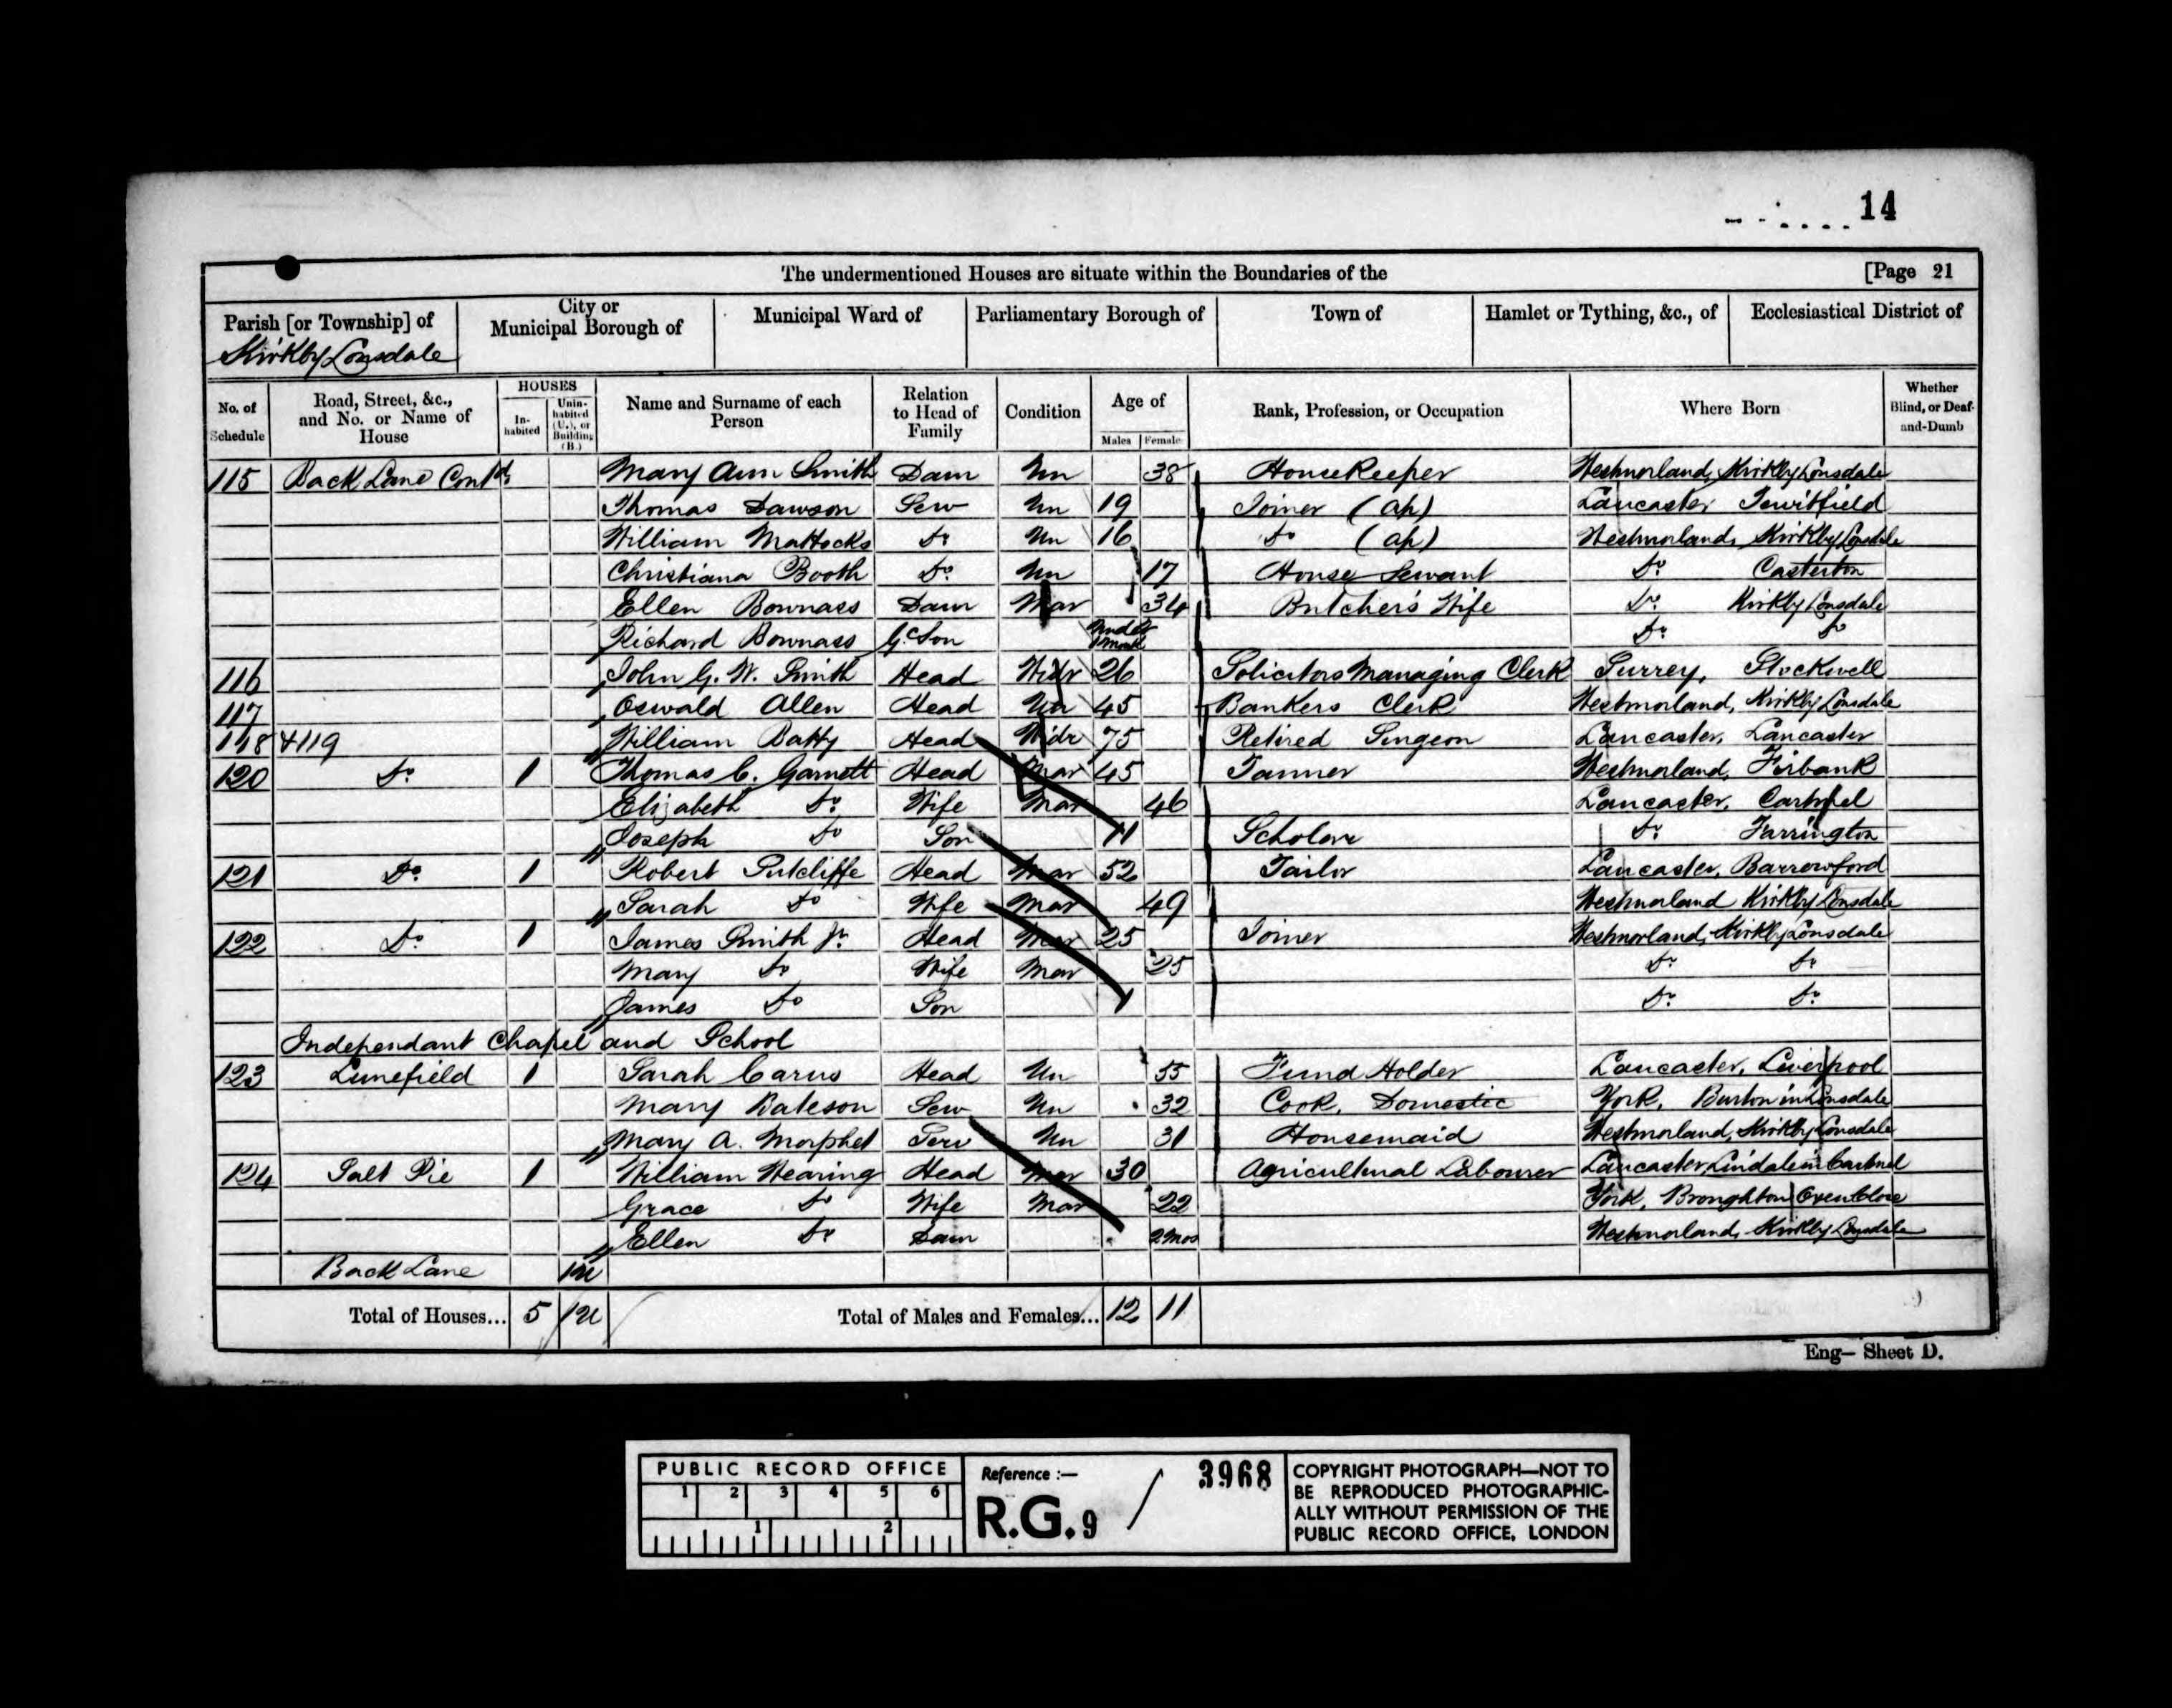 14
The undermentioned Houses are situate within the Boundaries of the [Page 21
Parish [or Township] of City or Municipal Borough of Municipal Ward of Parliamentary Borough of Town of Hamlet or Tything, &c., of Ecclesiastical District of
Kirkby Lonsdale
No. of Schedule Road, Street, &c., and No. or Name of House HOUSES In-habited Unin-habited (U.), or Building (B.) Name and Surname of each Person Relation to Head of Family Condition Age of Males Female Rank, Profession, or Occupation Where Born Whether Blind, or Deaf-and-Dumb
115 Back Lane Contd. Mary Ann Smith Daur Un 38 HouseKeeper Westmorland, Kirkby Lonsdale
Thomas Dawson Serv Un 19 Joiner (Ap) Lancaster Tewitfield
William Mattocks Do Un 16 Do (Ap) Westmorland, Kirkby Lonsdale
Christiana Booth Do Un 17 House Servant Do Casterton
Ellen Bownass Daur Mar 34 Butcher's Wife Do Kirkby Lonsdale
Richard Bownass G. Son Under 1 Month Do Do
116 John G. W. Smith Head Widr 26 Solicitors Managing Clerk Surrey, Stockwell
117 Oswald Allen Head Un 45 Bankers Clerk Westmorland, Kirkby Lonsdale
118 & 119 William Batty Head Widr 75 Retired Surgeon Lancaster, Lancaster
120 Do 1 Thomas C. Garnett Head Mar 45 Tanner Westmorland, Firbank
Elizabeth Do Wife Mar 46 Lancaster, Cartmel
Joseph Do Son 11 Scholar Do Farrington
121 Do 1 Robert Sutcliffe Head Mar 52 Tailor Lancaster, Barrowford
Sarah Do Wife Mar 49 Westmorland Kirkby Lonsdale
122 Do 1 James Smith Jr. Head Mar 25 Joiner Westmorland, Kirkby Lonsdale
Mary Do Wife Mar 25 Do Do
James Do Son 1 Do Do
Independant Chapel and School
123 Lunefield 1 Sarah Carus Head Un 55 Fund Holder Lancaster, Liverpool
Mary Bateson Serv Un 32 Cook, Domestic York, Burton in Lonsdale
Mary A. Morphet Serv Un 31 Housemaid Westmorland, Kirkby Lonsdale
124 Salt Pie 1 William Hearing Head Mar 30 Agricultural Labourer Lancaster, Lindale in Cartmel
Grace Do Wife Mar 22 York, Broughton
Ellen Do Daur 2 Mos Westmorland, Kirkby Lonsdale
Back Lane 1U
Total of Houses... 5 1U Total of Males and Females... 12 11
Eng— Sheet D.
PUBLIC RECORD OFFICE
1 2 3 4 5 6
1 2
Reference :—
R.G. 9 / 3968
COPYRIGHT PHOTOGRAPH—NOT TO
BE REPRODUCED PHOTOGRAPHIC-
ALLY WITHOUT PERMISSION OF THE
PUBLIC RECORD OFFICE, LONDON